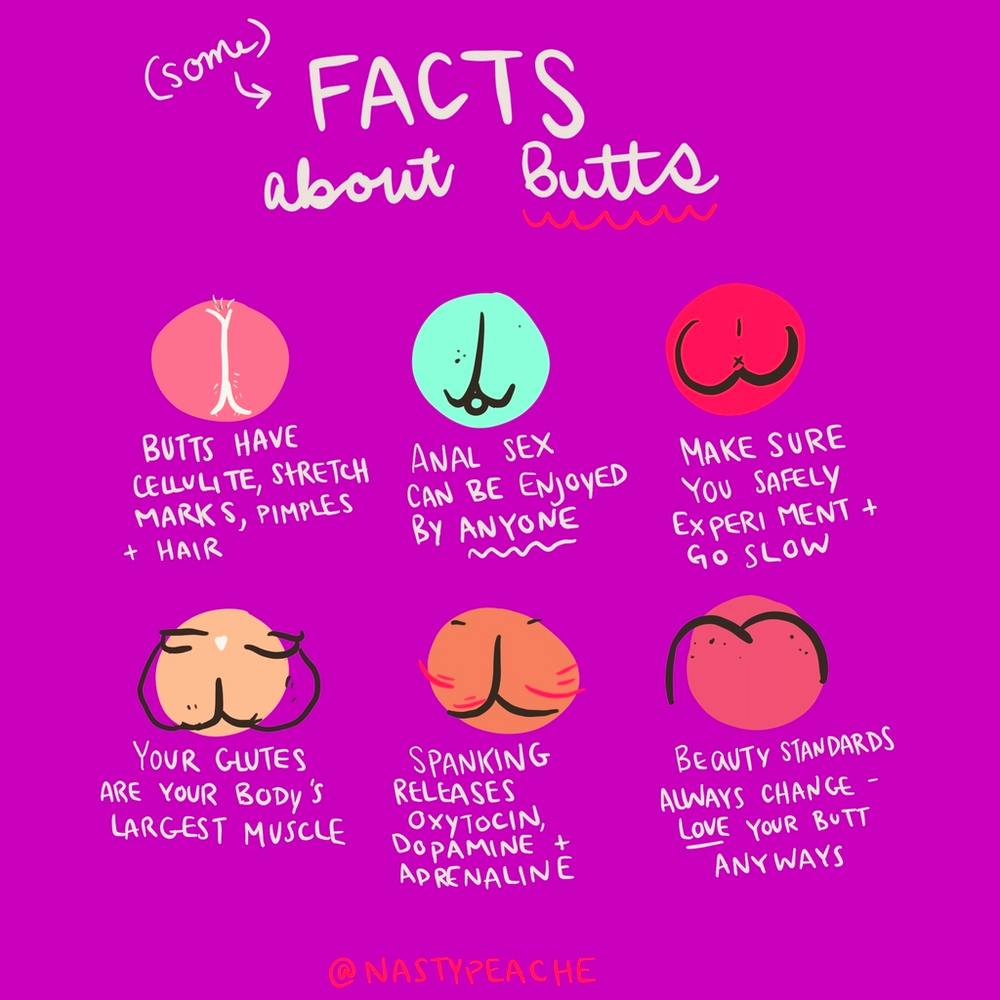 (some)
FACTS
about Butts
BUTTS HAVE
CELLULITE, STRETCH
MARKS, PIMPLES
+ HAIR
ANAL SEX
CAN BE ENJOYED
BY ANYONE
MAKE SURE
YOU SAFELY
EXPERIMENT +
GO SLOW
YOUR GLUTES
ARE YOUR BODY'S
LARGEST MUSCLE
SPANKING
RELEASES
OXYTOCIN,
DOPAMINE +
ADRENALINE
BEAUTY STANDARDS
ALWAYS CHANGE -
LOVE YOUR BUTT
ANYWAYS
@NASTYPEACHE